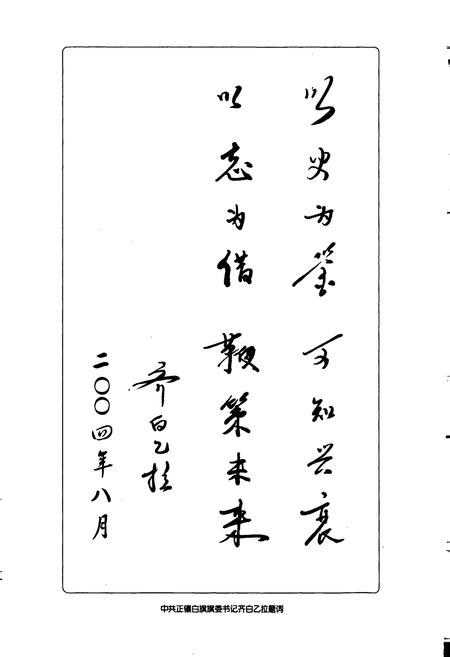 以史为鉴 可知兴衰
以志为借 鞭策未来
齐白乙拉
二〇〇四年八月
中共正镶白旗旗委书记齐白乙拉题词